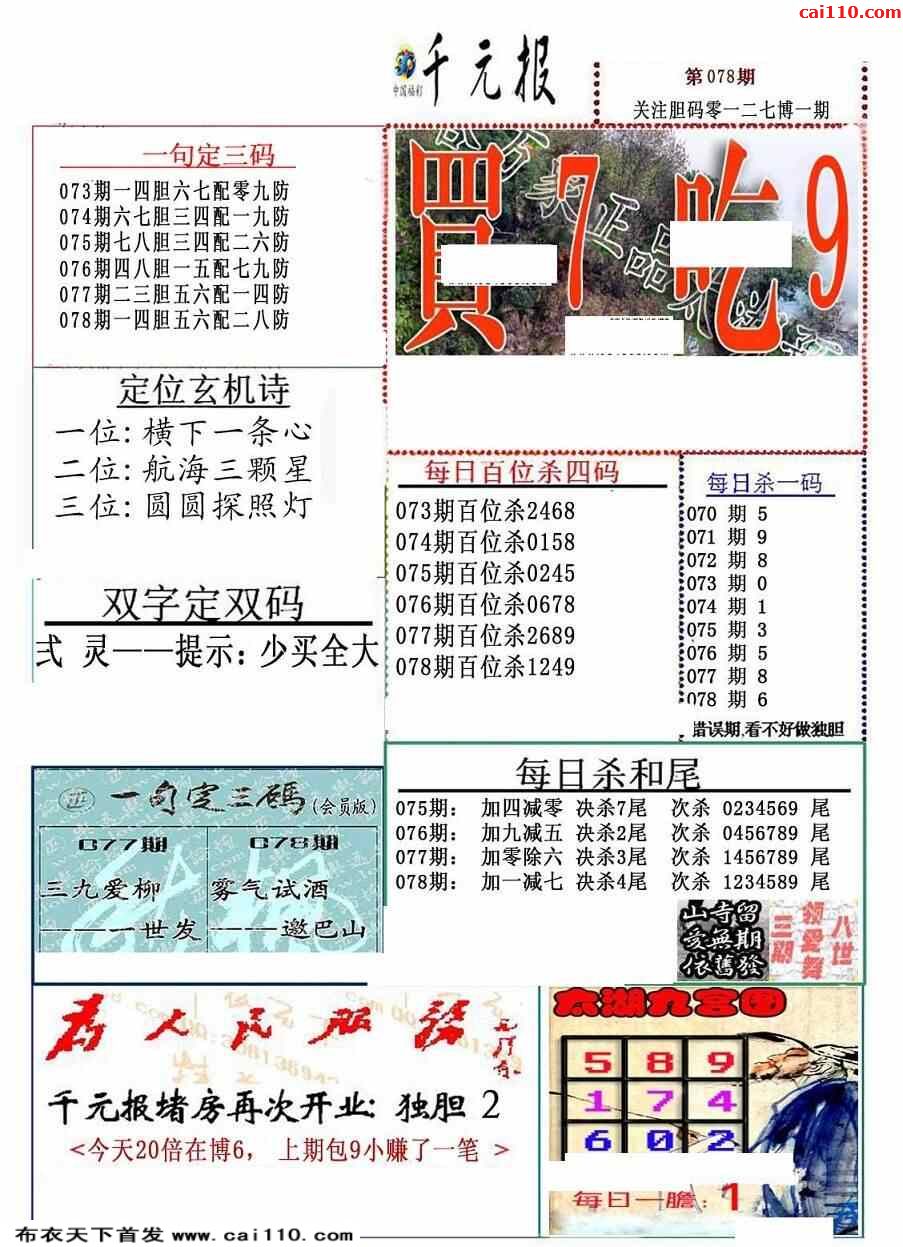 cai110.com
千元报
中国福彩
第078期
关注胆码零一二七博一期
一句定三码
073期一四胆六七配零九防
074期六七胆三四配一九防
075期七八胆三四配二六防
076期四八胆一五配七九防
077期二三胆五六配一四防
078期一四胆五六配二八防
買7吃9
定位玄机诗
一位:横下一条心
二位:航海三颗星
三位:圆圆探照灯
每日百位杀四码
073期百位杀2468
074期百位杀0158
075期百位杀0245
076期百位杀0678
077期百位杀2689
078期百位杀1249
每日杀一码
070 期 5
071 期 9
072 期 8
073 期 0
074 期 1
075 期 3
076 期 5
077 期 8
078 期 6
错误期,看不好做独胆
双字定双码
弍 灵——提示:少买全大
每日杀和尾
075期: 加四减零 决杀7尾 次杀 0234569 尾
076期: 加九减五 决杀2尾 次杀 0456789 尾
077期: 加零除六 决杀3尾 次杀 1456789 尾
078期: 加一减七 决杀4尾 次杀 1234589 尾
一句定三碼(会员版)
077期
三九爱柳
————一世发
078期
雾气试酒
————邀巴山
山寺留
爱無期
依舊發
三期
领爱舞
八世
为人民服务
千元报堵房再次开业:独胆 2
<今天20倍在博6, 上期包9小赚了一笔 >
太湖九宫图
5 8 9
1 7 4
6 0 2
每日一膽:1
布衣天下首发 www.cai110.com